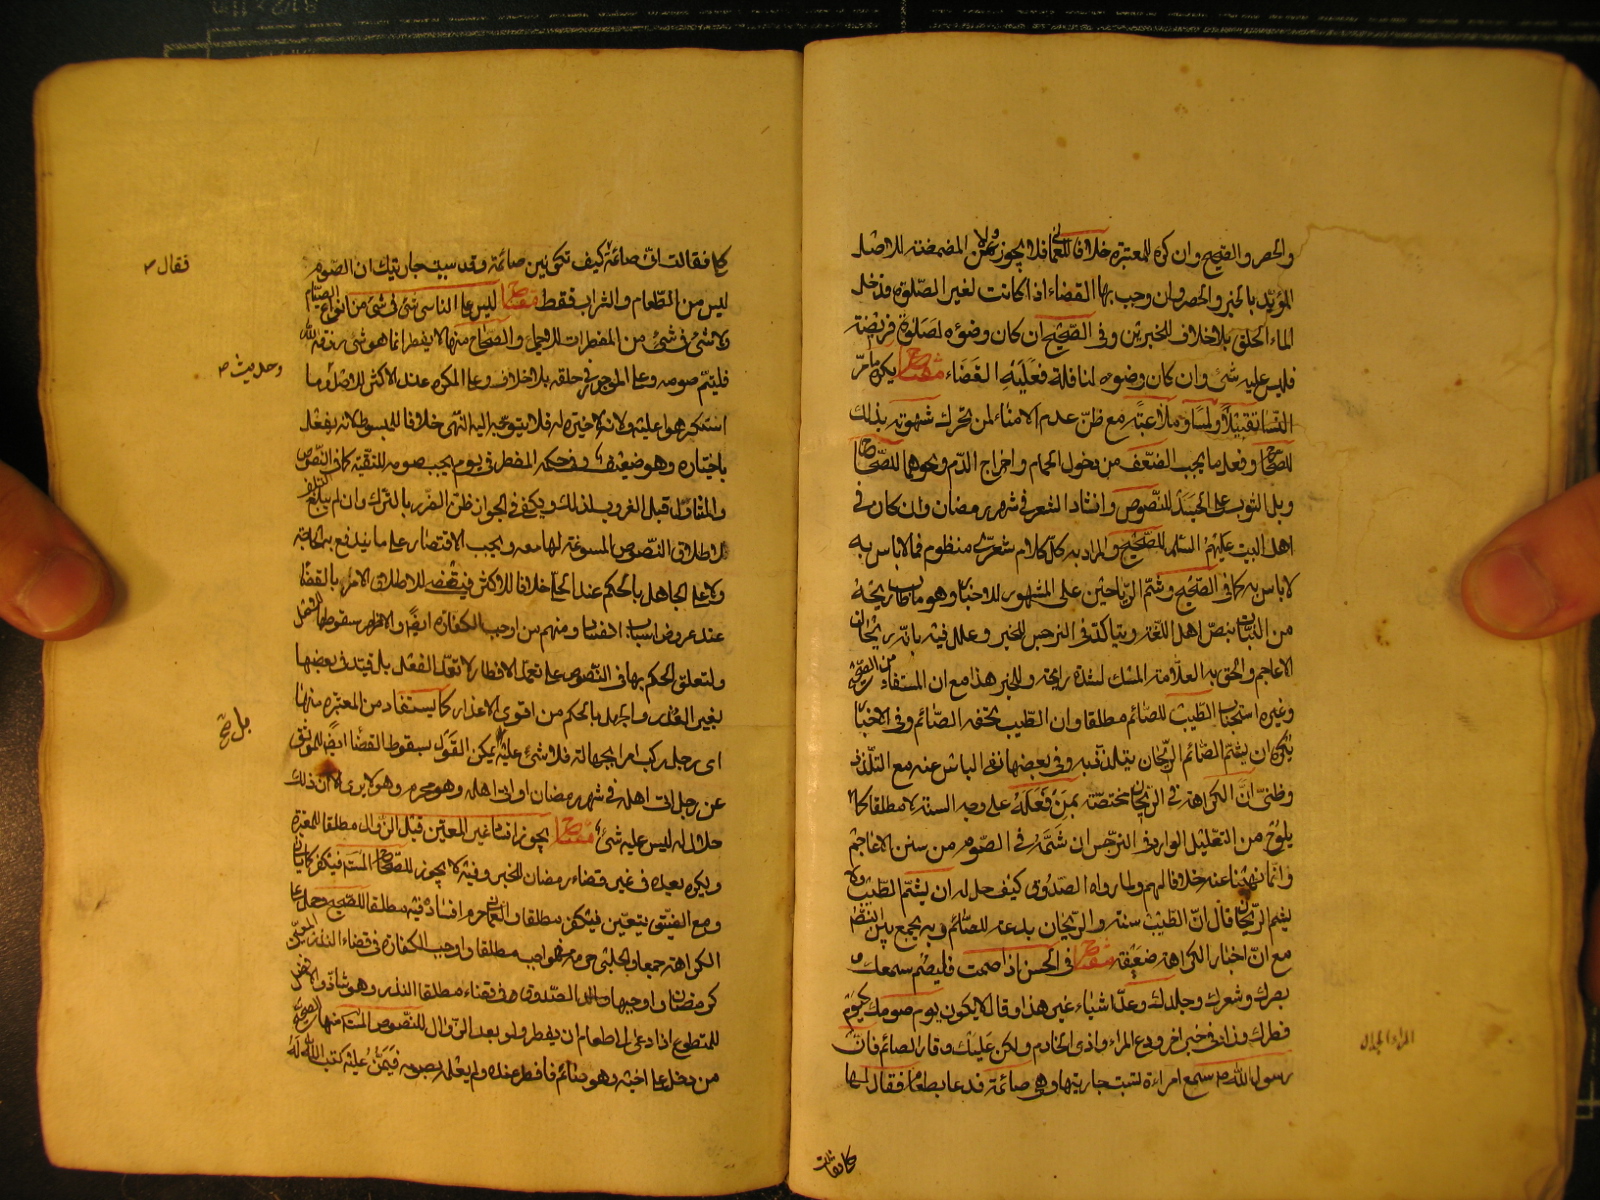 والحصر والصحيح وان كره للمعتبرة خلافا للعماني فلا يجوز ولمن المضمضة للاصل
المؤيد بالخبر والحصر وان وجب بها القضاء اذا كانت لغير الصلوة فدخل
الماء الحلق بلا خلاف للخبرين وفي الصحيح ان كان وضوئه لصلوة فريضة
فليس عليه شئ وان كان وضوئه لنافلة فعليه القضاء مفتاح يكره مامر
النساء تقبيلا ولمسا وملاعبة مع ظن عدم الامناء لمن تحرك شهوته بذلك
للصحاح وفعل ما يوجب الضعف من دخول الحمام واخراج الدم ونحوهما للصحاح
وبل الثوب على الجسد للنصوص وانشاد الشعر في شهر رمضان وان كان في
اهل البيت عليهم السلم للصحيح والمراد به كل كلام شعري منظوم فما لا باس به
لا باس به كما في الصحيح وشم الرياحين على المشهور للاخبار وهو ما طاب ريحه
من النبات بنص اهل اللغة ويتاكد في النرجس للخبر وعلل فيه بانه ريحان
الاعاجم والحق به العلامة المسك لشدة رايحته وللخبر هذا مع ان المستفاد من الصحيح
وغيره استحباب الطيب للصائم مطلقا وان الطيب تحفة الصائم وفي الاخبار
يكره ان يشم الصائم الريحان يتلذذ به وفي بعضها نفي الباس عنه مع التلذذ
وظني ان الكراهة في الريحان مختصة بمن فعله على وجه السنة لا مطلقا كما
يلوح من التعليل الوارد في النرجس ان شمه في الصوم من سنن الاعاجم
وانما نهينا عنه خلافا لهم ولما رواه الصدوق كيف حل له ان يشم الطيب ولا
يشم الريحان قال ان الطيب سنة والريحان بدعة للصائم وبه يجمع بين النصوص
مع ان اخبار الكراهة ضعيفة مفتاح في الحسن اذا صمت فليصم سمعك و
بصرك وشعرك وجلدك وعد اشياء غير هذا وقال لا يكون يوم صومك كيوم
فطرك وزاد في خبر اخر ودع المراء واذى الخادم وليكن عليك وقار الصائم فان
رسول الله ص سمع امراءة تسب جاريتها وهي صائمة فدعا بطعام فقال لها
المراء الجدال
كلي فقالت
كلي فقالت اني صائمة كيف تكونين صائمة وقد سببت جاريتك ان الصوم
فقال ٢
ليس من الطعام والشراب فقط مفتاح ليس على الناسي شئ في شئ من انواع الصيام
ولا شئ في شئ من المفطرات للاجماع والصحاح منها لا يفطر انما هو شئ رزقه الله
فليتم صومه وعلى الموجر في حلقه بلا خلاف وعلى المكره عند الاكثر للاصل وما
وحديث ص
استكرهوا عليه ولانه لا خيرة له فلا يتوجه اليه النهي خلافا للمبسوط لانه يفعل
باختياره وهو ضعيف وفي حكمه المفطر في يوم يجب صومه للتقية كما في النصوص
والمفطر قبل الغروب لذلك ويكفي في الجواز ظن الضرر بالترك وان لم يبلغ التلف
لاطلاق النصوص المسوغة لها معه ويجب الاقتصار على ما يندفع به الحاجة
ولا على الجاهل بالحكم عند الحلي خلافا للاكثر فيقضي لاطلاق الامر بالقضاء
عند عروض اسباب الفساد ومنهم من اوجب الكفارة ايضا والاظهر سقوطها للاصل
ولتعلق الحكم بها في النصوص على تعمد الافطار لا تعمد الفعل بل قيد في بعضها
بغير العذر والجهل بالحكم من اقوى الاعذار كما يستفاد من المعتبرة منها
اي رجل ركب امرا بجهالة فلا شئ عليه يمكن القول بسقوط القضاء ايضا للموثق
بل صح
عن رجل اتى اهله في شهر رمضان او اتى اهله وهو محرم وهو لا يرى الا ان ذلك
حلال له ليس عليه شئ مفتاح يجوز افساد غير المعين قبل الزوال مطلقا للمعتبرة
ويكره بعده في غير قضاء رمضان للخبر وفيه لا يجوز للصحاح المستفيضة
ومع الضيق يتعين مطلقا والعماني حرم افساده فيه مطلقا للصحيح وحمل على
الكراهة جمعا والحلبي حرمه في واجب مطلقا واوجب الكفارة في قضاء النذر المعين
كرمضان واوجبها والد الصدوق في قضاء مطلق النذر وهو شاذ والافضل
للمتطوع اذا دعي الى طعام ان يفطر ولو بعد الزوال للنصوص المستفيضة منها الصحيح
من دخل على اخيه وهو صائم فافطر عنده ولم يعلمه بصومه فيمن عليه كتب الله له